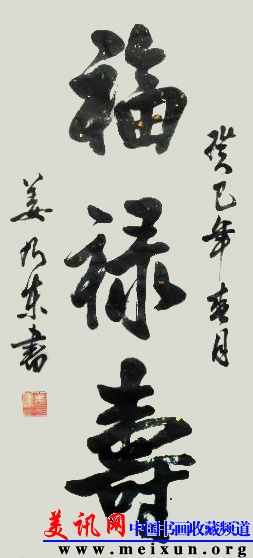 福禄寿
癸巳年春月
姜乃东書
美讯网 中国书画收藏频道
www.meixun.org